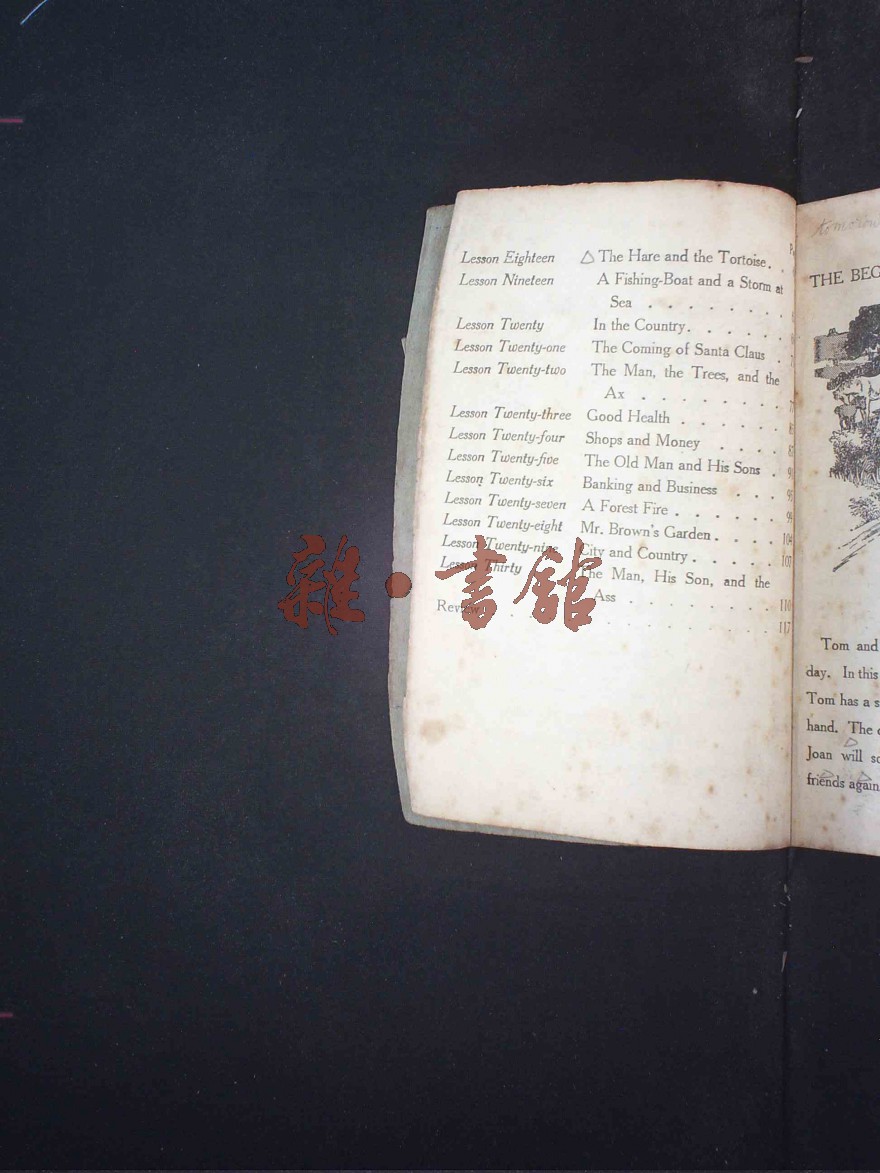 Lesson Eighteen △ The Hare and the Tortoise. .
Lesson Nineteen A Fishing-Boat and a Storm at
Sea . . . . . . . .
Lesson Twenty In the Country. . . . . .
Lesson Twenty-one The Coming of Santa Claus .
Lesson Twenty-two The Man, the Trees, and the
Ax . . . . . . . .
Lesson Twenty-three Good Health . . . . . .
Lesson Twenty-four Shops and Money . . . . 87
Lesson Twenty-five The Old Man and His Sons . 91
Lesson Twenty-six Banking and Business . . . 95
Lesson Twenty-seven A Forest Fire . . . . . . 99
Lesson Twenty-eight Mr. Brown's Garden . . . . 104
Lesson Twenty-nine City and Country . . . . . 107
Lesson Thirty The Man, His Son, and the
Ass . . . . . . . . 110
Review . . . . . . . . 117
雜·書館
THE BEG
Tom and
day. In this
Tom has a s
hand. The
Joan will
friends again